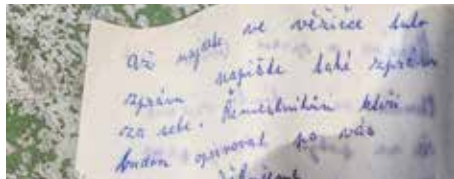 Až najdete ve věžičce tuto
zprávu napište také zprávu
za sebe. Řemeslníkům kteří
budou opravovat po vás